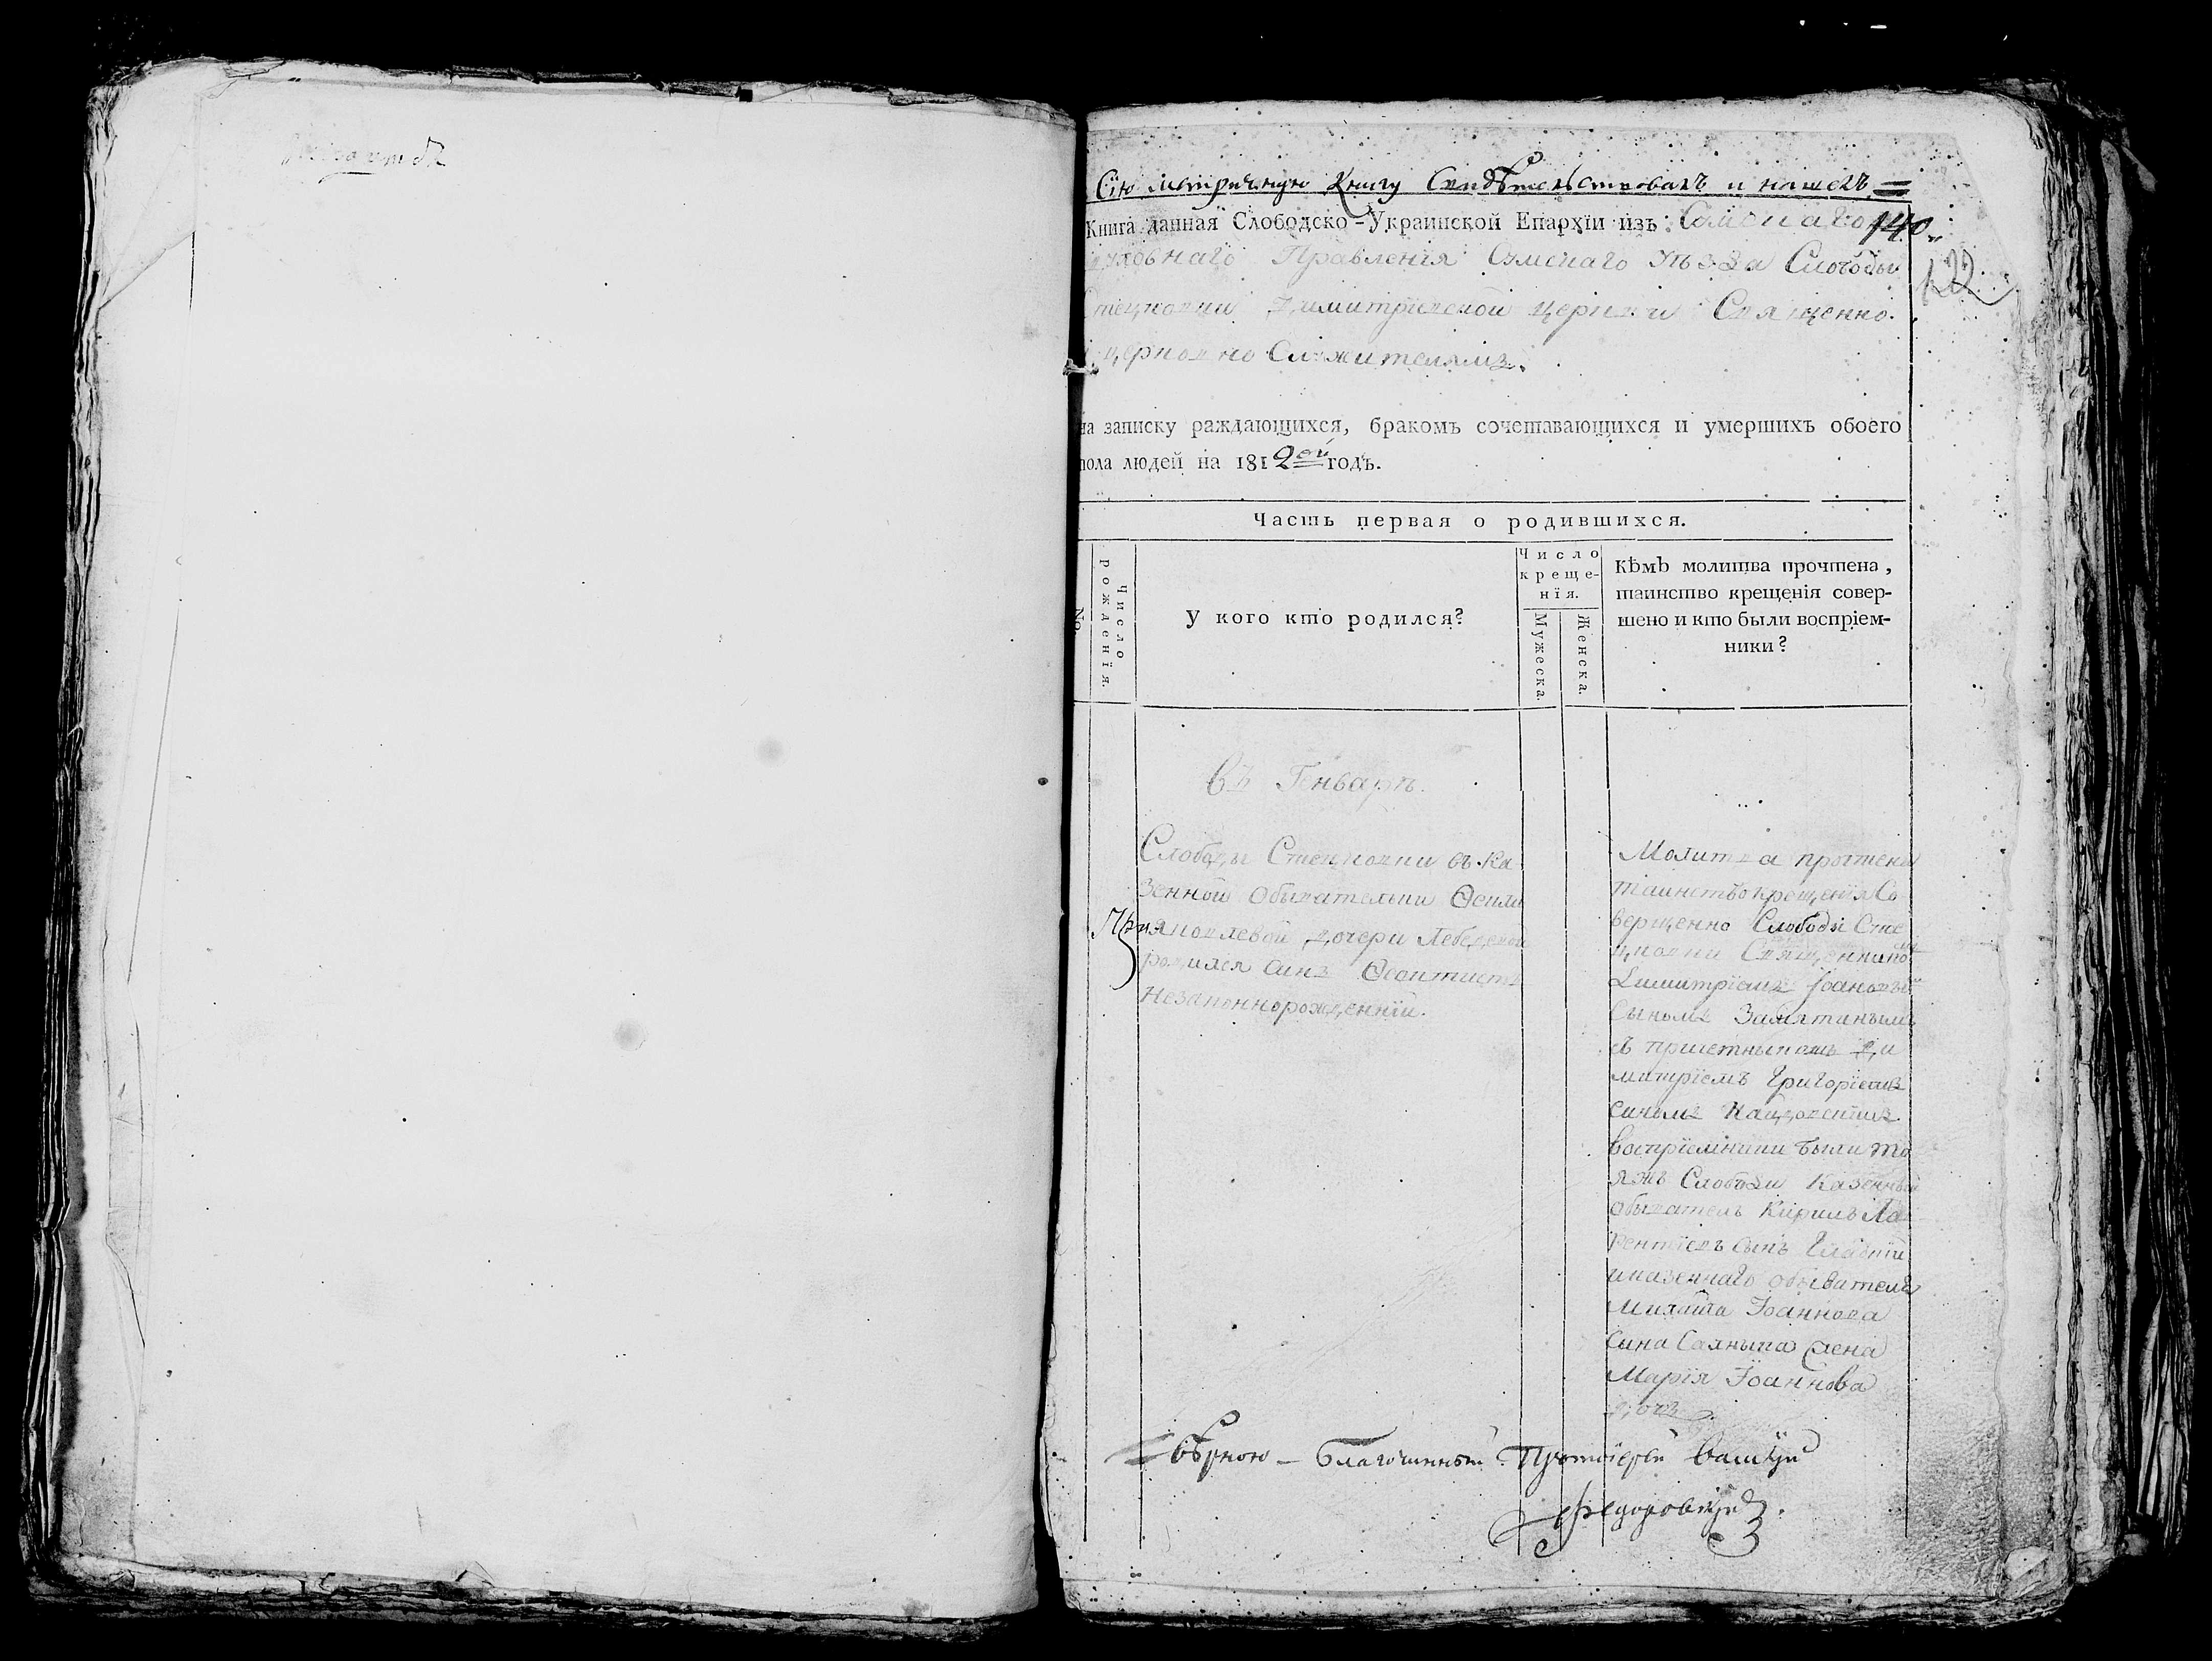 Сїю метричную Книгу Свидѣтельствовалъ и нашелъ =
Книга данная Слободско-Украинской Епархїи изъ Сумскаго
140
духовнаго Правленїя Сумскаго уѣзда Слободы
122
Стецковки Димитрїевской церкви Священно
и церковно Служителямъ.
на записку раждающихся, бракомъ сочетавающихся и умершихъ обоего
пола людей на 1812ой годъ.
Часть первая о родившихся.
№
Число рожденїя.
У кого кто родился?
Число креще-нїя.
Мужеска.
Женска.
Кѣмъ молитва прочтена,
таинство крещенїя совер-
шено и кто были воспрїем-
ники?
Въ Генварѣ.
Слободы Стецковки въ ка
зенной обывательки
Яковлевой дочери
родился синъ
Незаконнорожденнїй.
Молитва прочтена
таинство крещенїя со
вершенно Слободы Сте
цковки Священникомъ
Димитрїемъ Іоановымъ
Сыномъ Замятинымъ
съ причетникомъ Ди
митрїемъ Григорїевимъ
синомъ
воспрїемники были то
яжъ Слободи Казенный
обыватель Кирилъ Ла
врентїевъ сынъ
и казеннаго обывателя
Михаила Іоаннова
сина жена
Марїя Іоаннова
дочь.
= вѣрною - Благочинный Протоїерей Василїй
Федоровскїй.